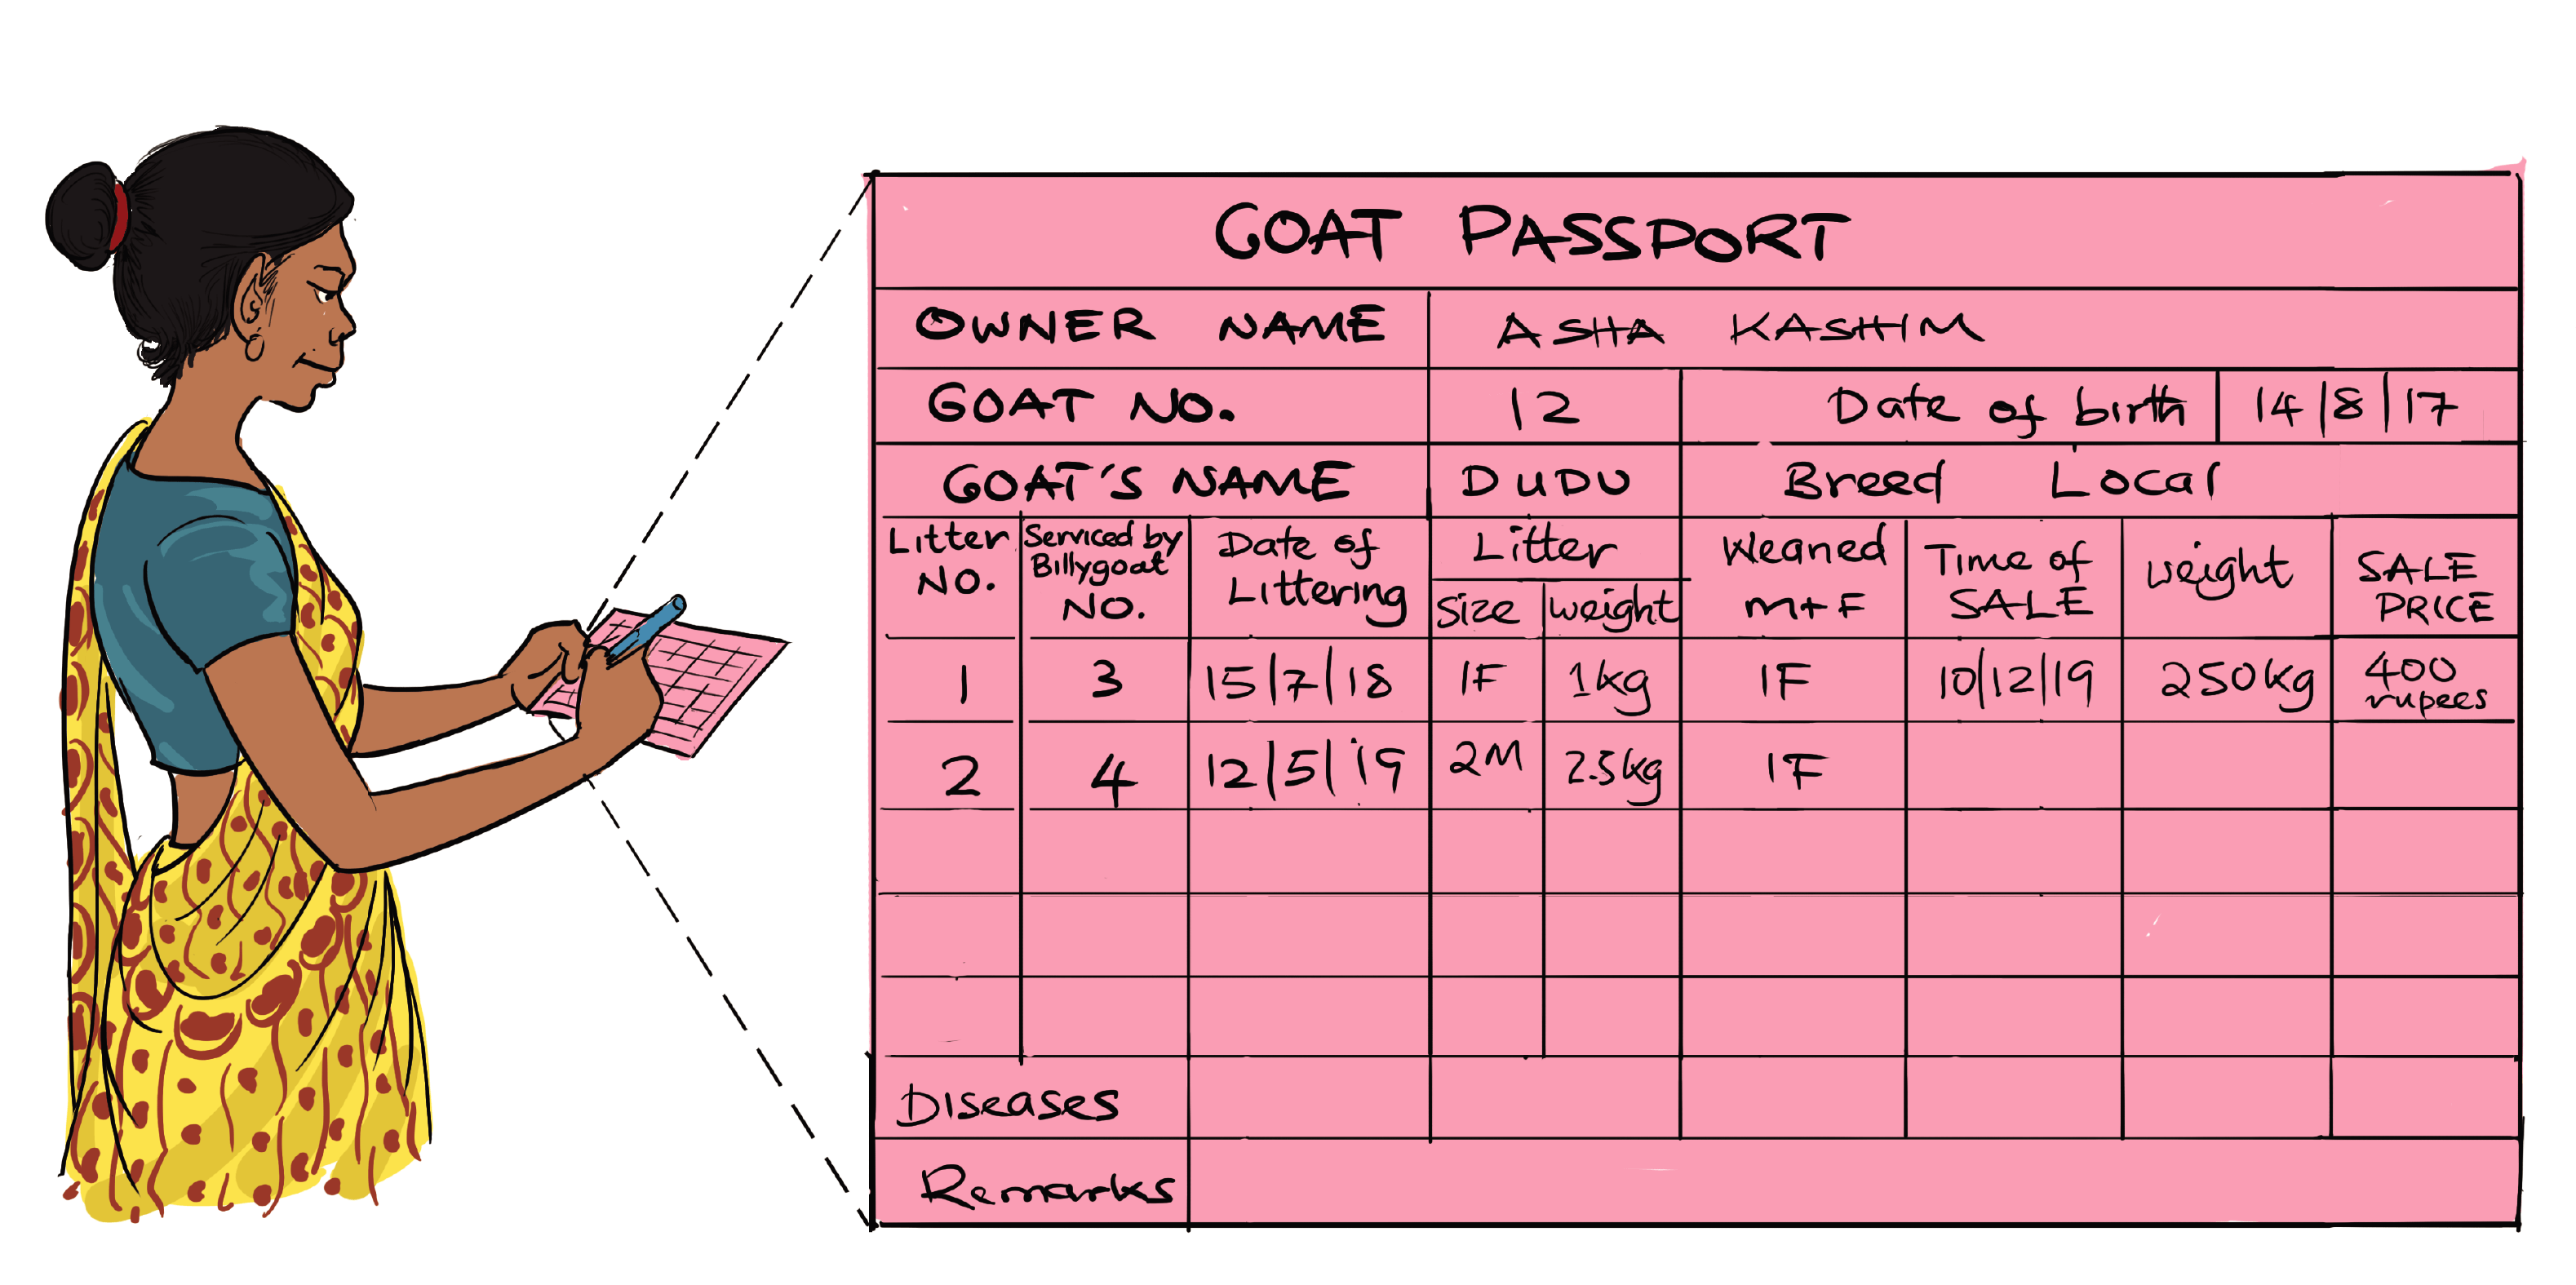 GOAT PASSPORT
OWNER NAME ASHA KASHIM
GOAT NO. 12 Date of birth 14/8/17
GOAT'S NAME DUDU Breed Local
Litter NO. Serviced by Billygoat NO. Date of Littering Litter Size weight Weaned M+F Time of SALE weight SALE PRICE
1 3 15/7/18 1F 1kg 1F 10/12/19 250kg 400 rupees
2 4 12/5/19 2M 2.5kg 1F
Diseases
Remarks